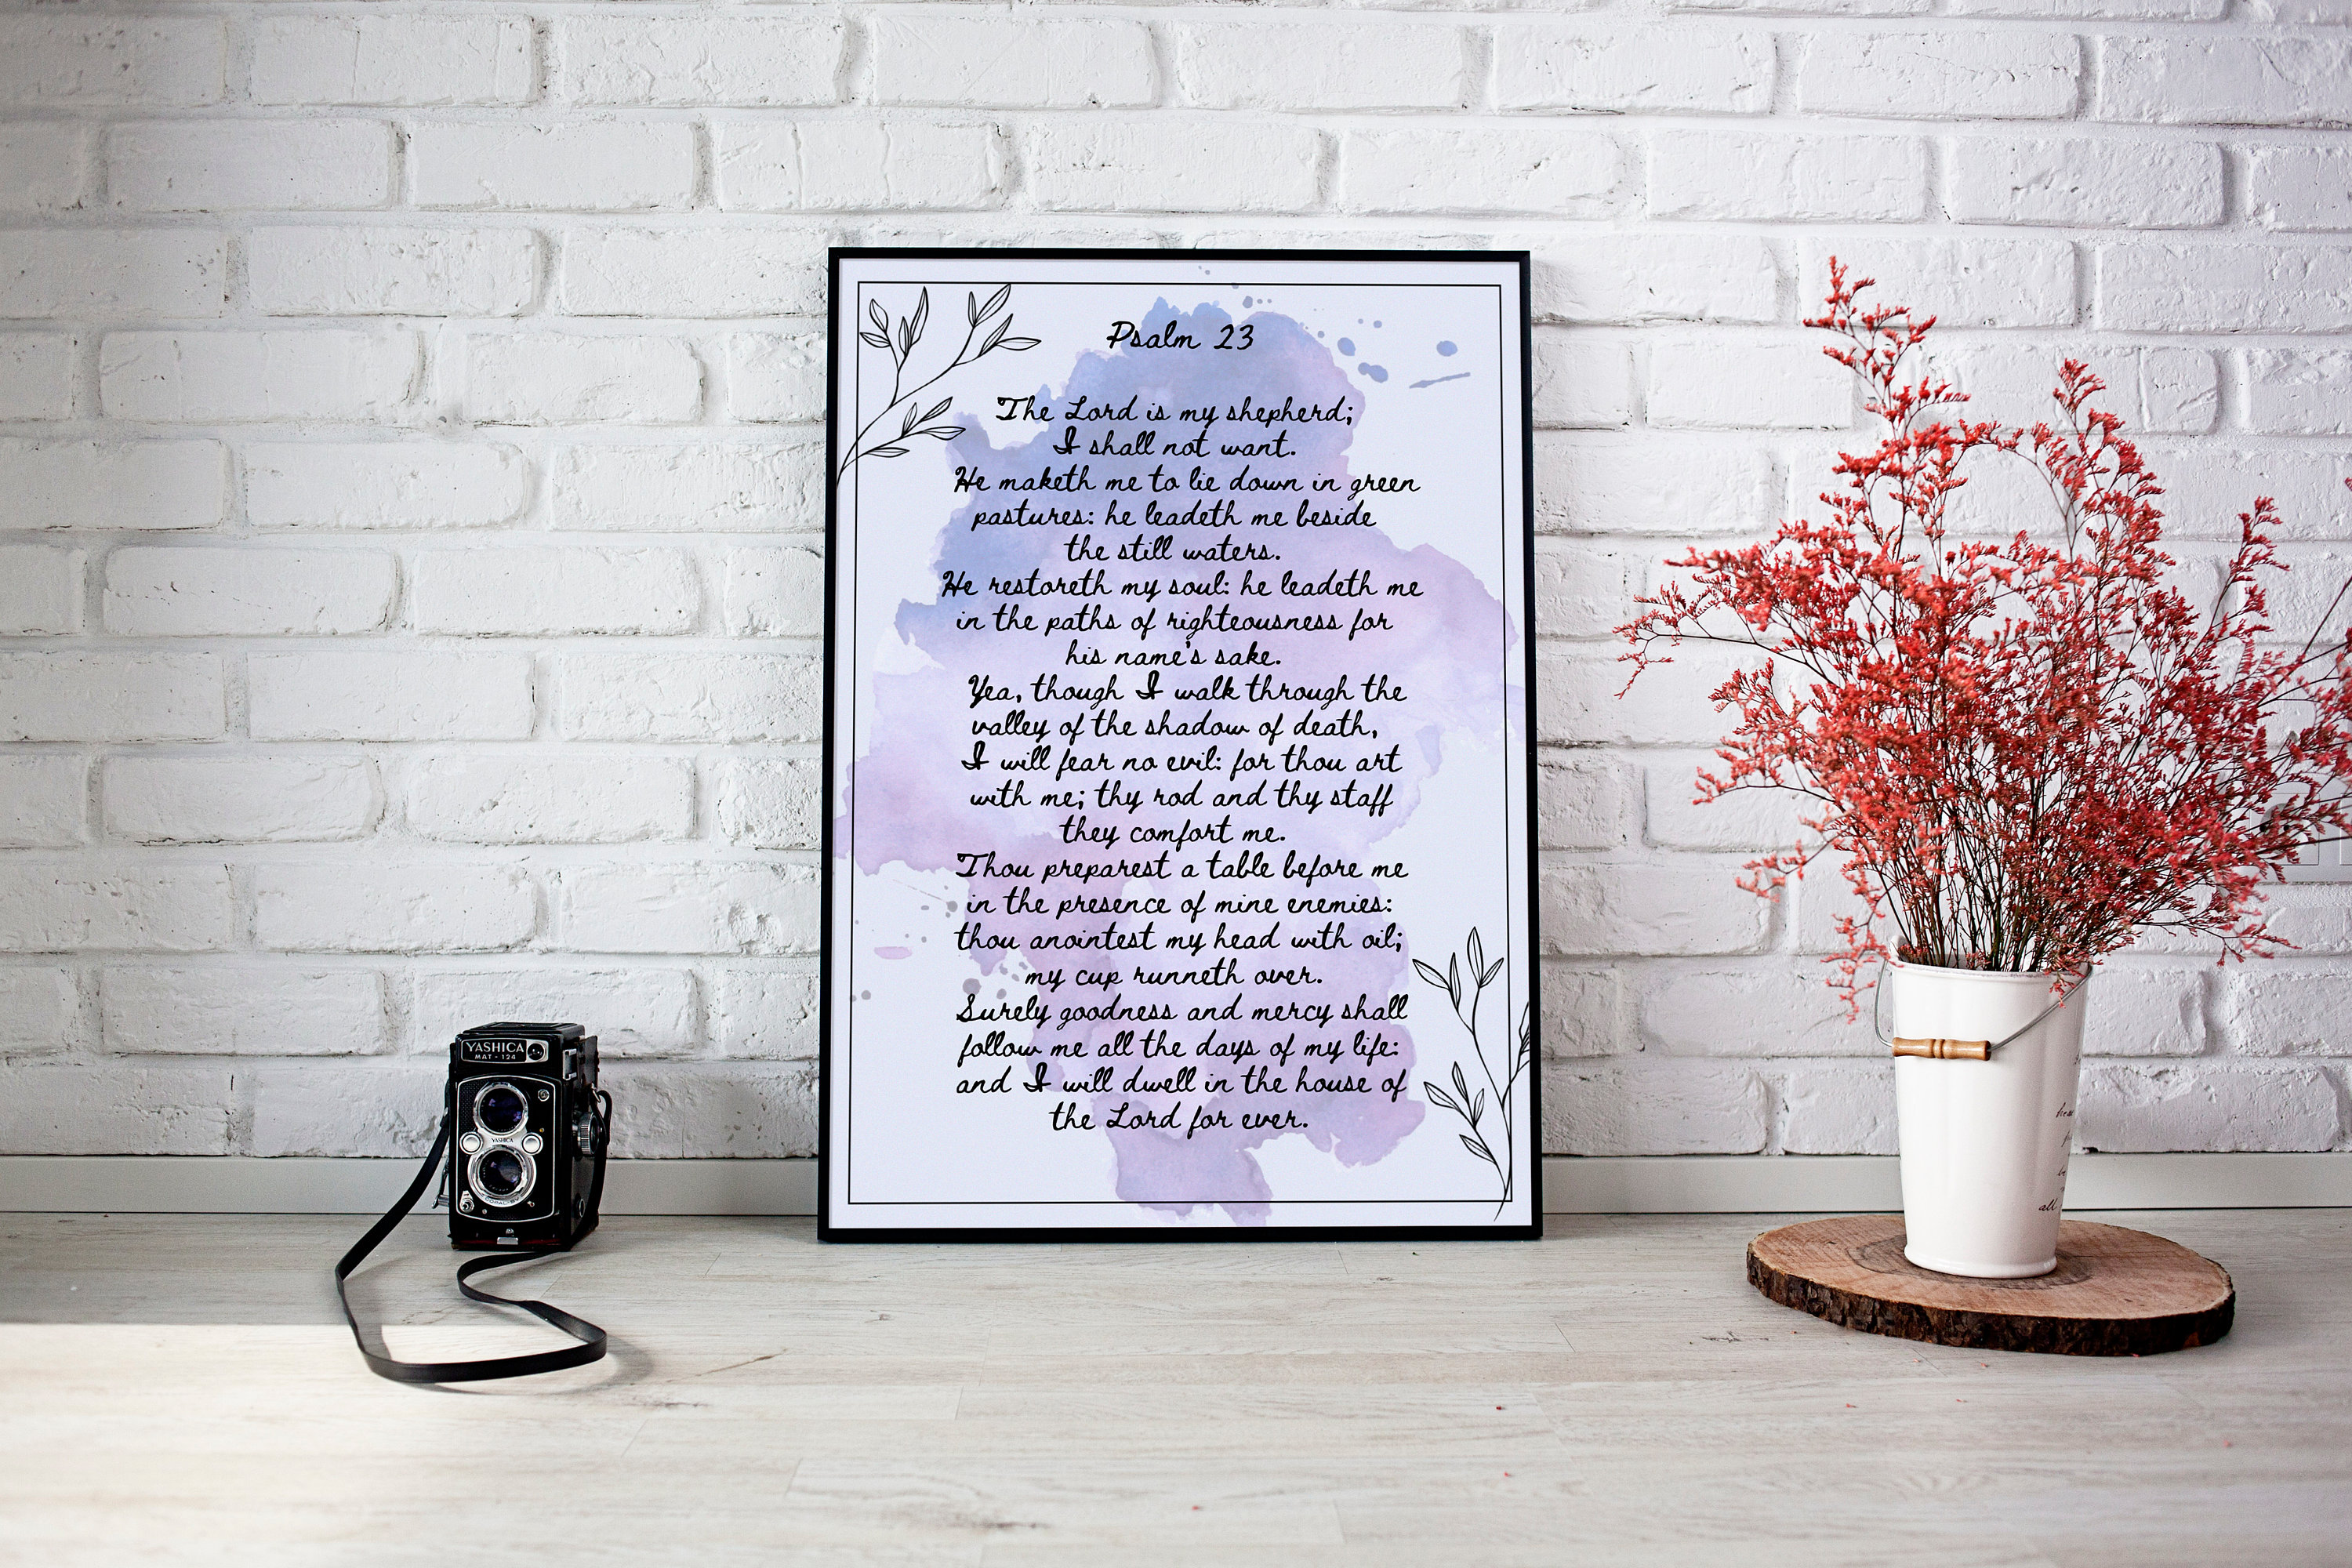 Psalm 23
The Lord is my shepherd;
I shall not want.
He maketh me to lie down in green
pastures: he leadeth me beside
the still waters.
He restoreth my soul: he leadeth me
in the paths of righteousness for
his name's sake.
Yea, though I walk through the
valley of the shadow of death,
I will fear no evil: for thou art
with me; thy rod and thy staff
they comfort me.
Thou preparest a table before me
in the presence of mine enemies:
thou anointest my head with oil;
my cup runneth over.
Surely goodness and mercy shall
follow me all the days of my life:
and I will dwell in the house of
the Lord for ever.
YASHICA
MAT-124
YASHICA
all